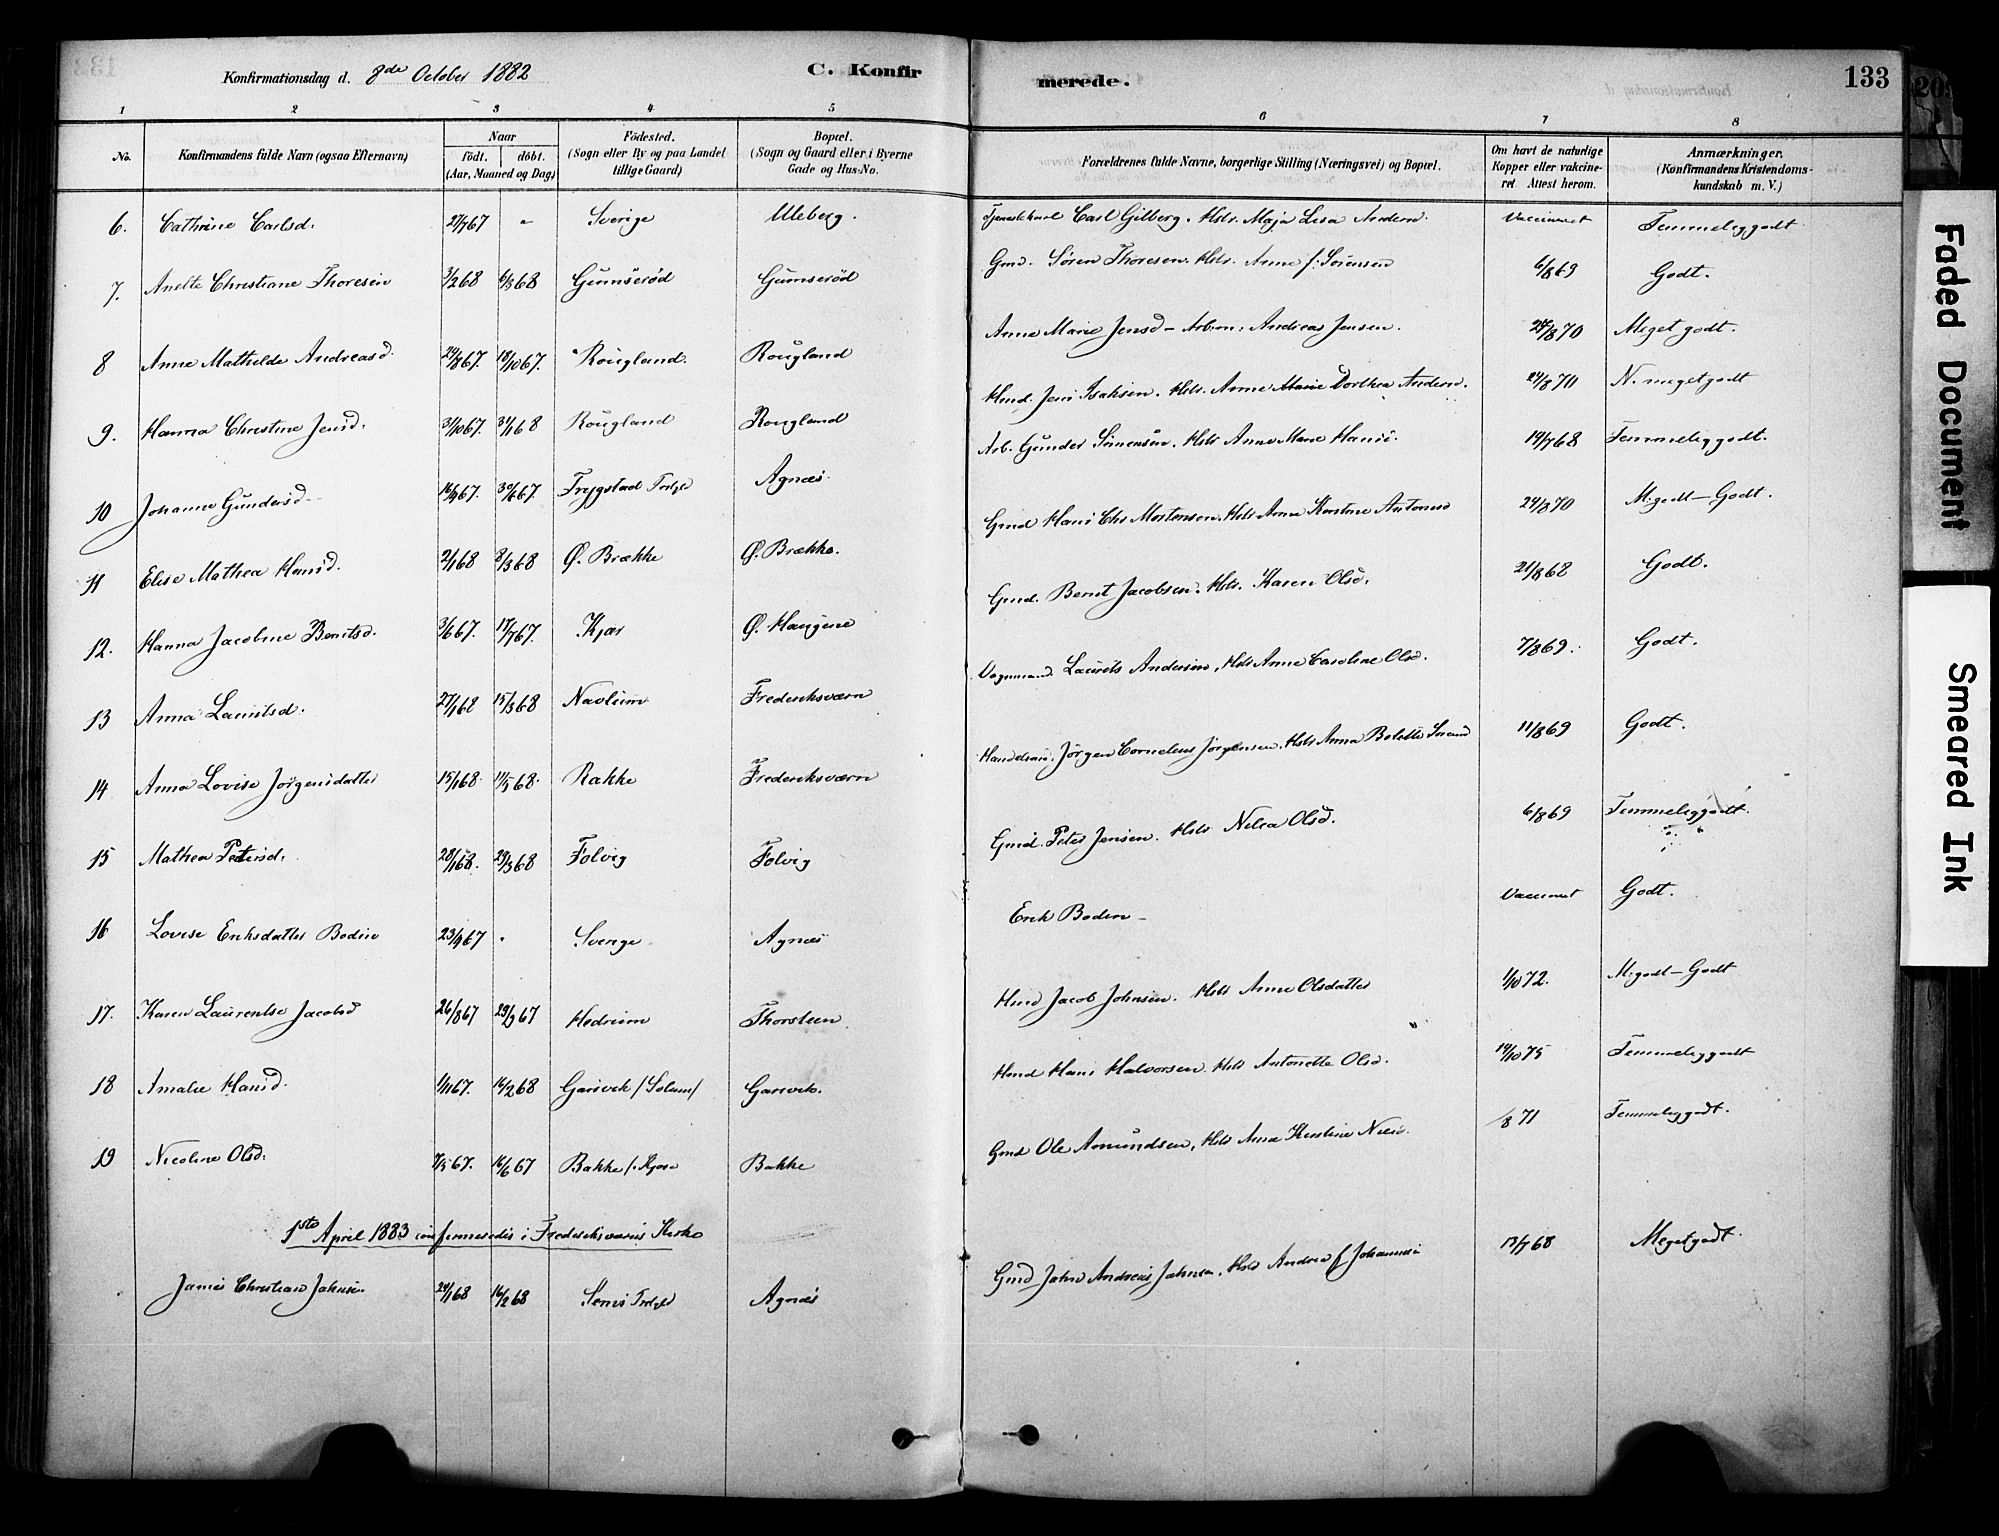 Konfirmationsdag d. 8de October 1882 C. Konfir merede. 133
1 2 3 4 5 6 7 8
No. Konfirmandens fulde Navn (ogsaa Efternavn) Naar födt. döbt. (Aar, Maaned og Dag) Födested. (Sogn eller By og paa Landet tillige Gaard) Bopæl. (Sogn og Gaard eller i Byerne Gade og Hus-No. Forældrenes fulde Navne, borgerlige Stilling (Næringsvei) og Bopæl. Om havt de naturlige Kopper eller vakcineret Attest herom. Anmærkninger. (Konfirmandens Kristendomskundskab m. V.)
6. Cathrine Carlsd. 27/7 67 - Sverige Uleberg. Tjenestekarl Carl Gilberg. Hstr. Maja Lisa Andersd. Vaccineret Temmeliggodt
7. Anette Christiane Thoresen 3/2 68 6/3 68 Gumserød Gumserød Gmd. Søren Thoresen. Hstr. Anne f: Sørensen 6/8 69 Godt.
8 Anne Mathilde Andreasd. 29/8 67. 18/10 67. Rougland. Rougland Anne Marie Jensd - Arbm: Andreas Jensen. 24/8 70 Meget godt.
9. Hanna Christine Jensd. 31/10 67. 31/1 68 Rougland Rougland Hmd. Jens Isaksen. Hstr. Anne Marie Dorthea Andersd. 24/8 70 N. megetgodt
10 Johanne Gundersd. 16/4 67. 30/6 67. Frygstad Tjølg Agnæs. Arb. Gunder Simensen. Hstr Anne Marie Hansd. 19/7 68 Temmeliggodt.
11 Elise Mathea Hansd. 2/1 68 8/3 68 Ø. Brække Ø. Brække. Gmd Hans Chr Mortensen. Hstr Anne Kirstine Antonsd 24/8 70 M.godt-Godt.
12. Hanna Jacobine Berntsd. 3/6 67. 17/7 67. Kjær Ø. Haugene Gmd. Bernt Jacobsen. Hstr. Karen Olsd. 21/8 68 Godt.
13 Anna Lauritsd. 27/1 68 15/3 68 Navlum Frederiksværn Vognmand Laurits Andersen, Hstr Anne Caroline Olsd. 7/8 69. Godt.
14 Anna Lovise Jørgensdatter 15/1 68. 11/5 68. Rakke Frederiksværn Handelsm. Jørgen Cornelius Jørgensen. Hstr Anna Bolette Sørensd 11/8 69 Godt.
15 Mathea Petersd. 28/1 68. 29/3 68 Folvig Folvig Gmd. Peter Jensen. Hstr Nilea Olsd. 6/8 69 Temmeliggodt.
16 Lovise Eriksdatter Bodin 23/9 67 - Sverige Agnæs Erik Bodin - Vaccineret Godt.
17. Karen Laurentse Jacobsd 26/8 67 29/9 67 Hedrum Thorsteen Hmd Jacob Johnsen. Hstr Anne Olsdatter 1/10 72. M.godt-Godt
18 Amalie Hansd. 1/11 67. 16/2 68 Garsvik /Solum/ Garsvik. Hmd Hans Halvorsen. Hstr Antonette Olsd. 14/10 75 Temmeliggodt
19 Nicoline Olsd. 7/5 67. 16/6 67 Bakke /: Kjose Bakke Gmd Ole Amundsen, Hstr Anne Kirstine Nilsd. /8 71 Temmeliggodt.
1ste April 1883 confirmeredes i Frederiksværns Kirke
James Christian Johnsen 24/1 68 16/2 68 Agnæs Gmd John Andreas Johnsen, Hstr Andrea f Johannsen 13/7 68 Megetgodt.
Faded Document
Smeared Ink